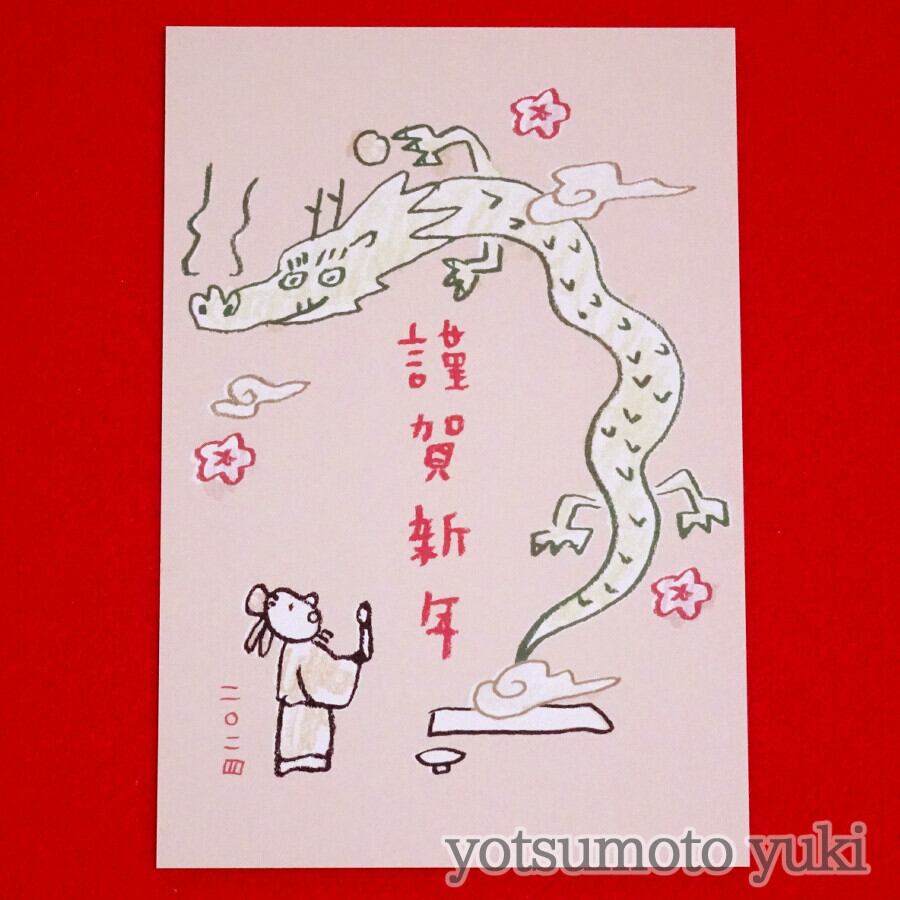 謹賀新年
二〇二四
yotsumoto yuki